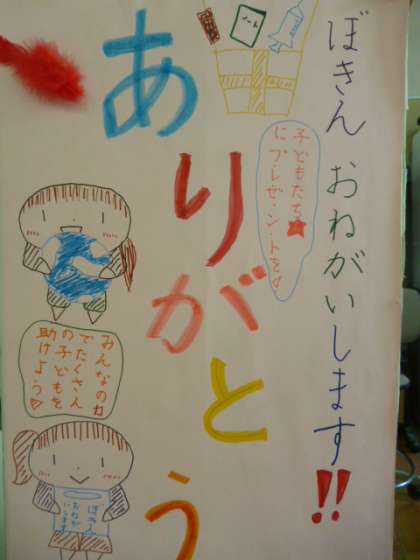 ぼきん おねがいします!!
ノート
子どもたち★
にプレゼ・ン・トを♪
ありがとう
みんなの力
でたくさん
の子どもを
助けよう♡
ぼきん
おねが
いします